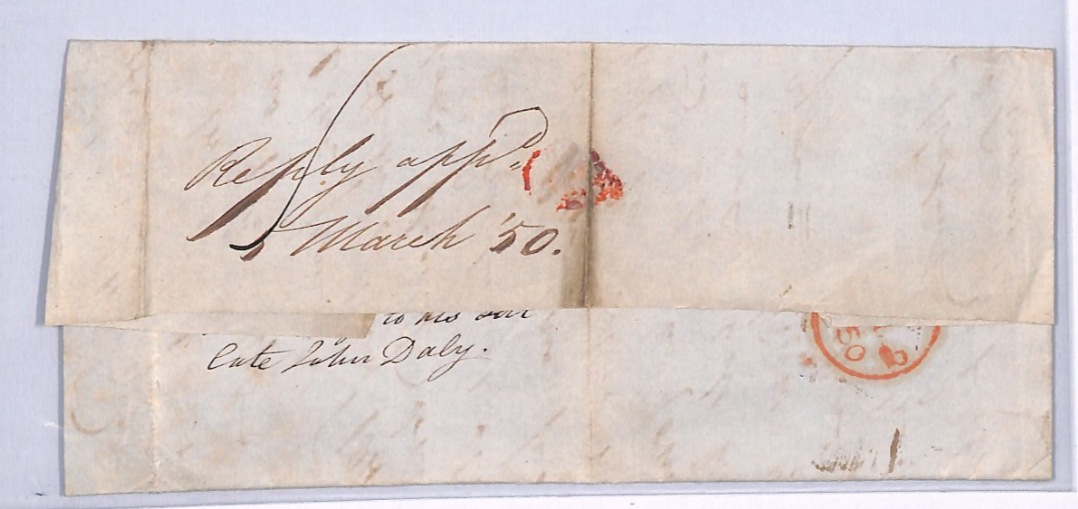 Reply app^d.
5 March '50.
to his son
late John Daly.
50